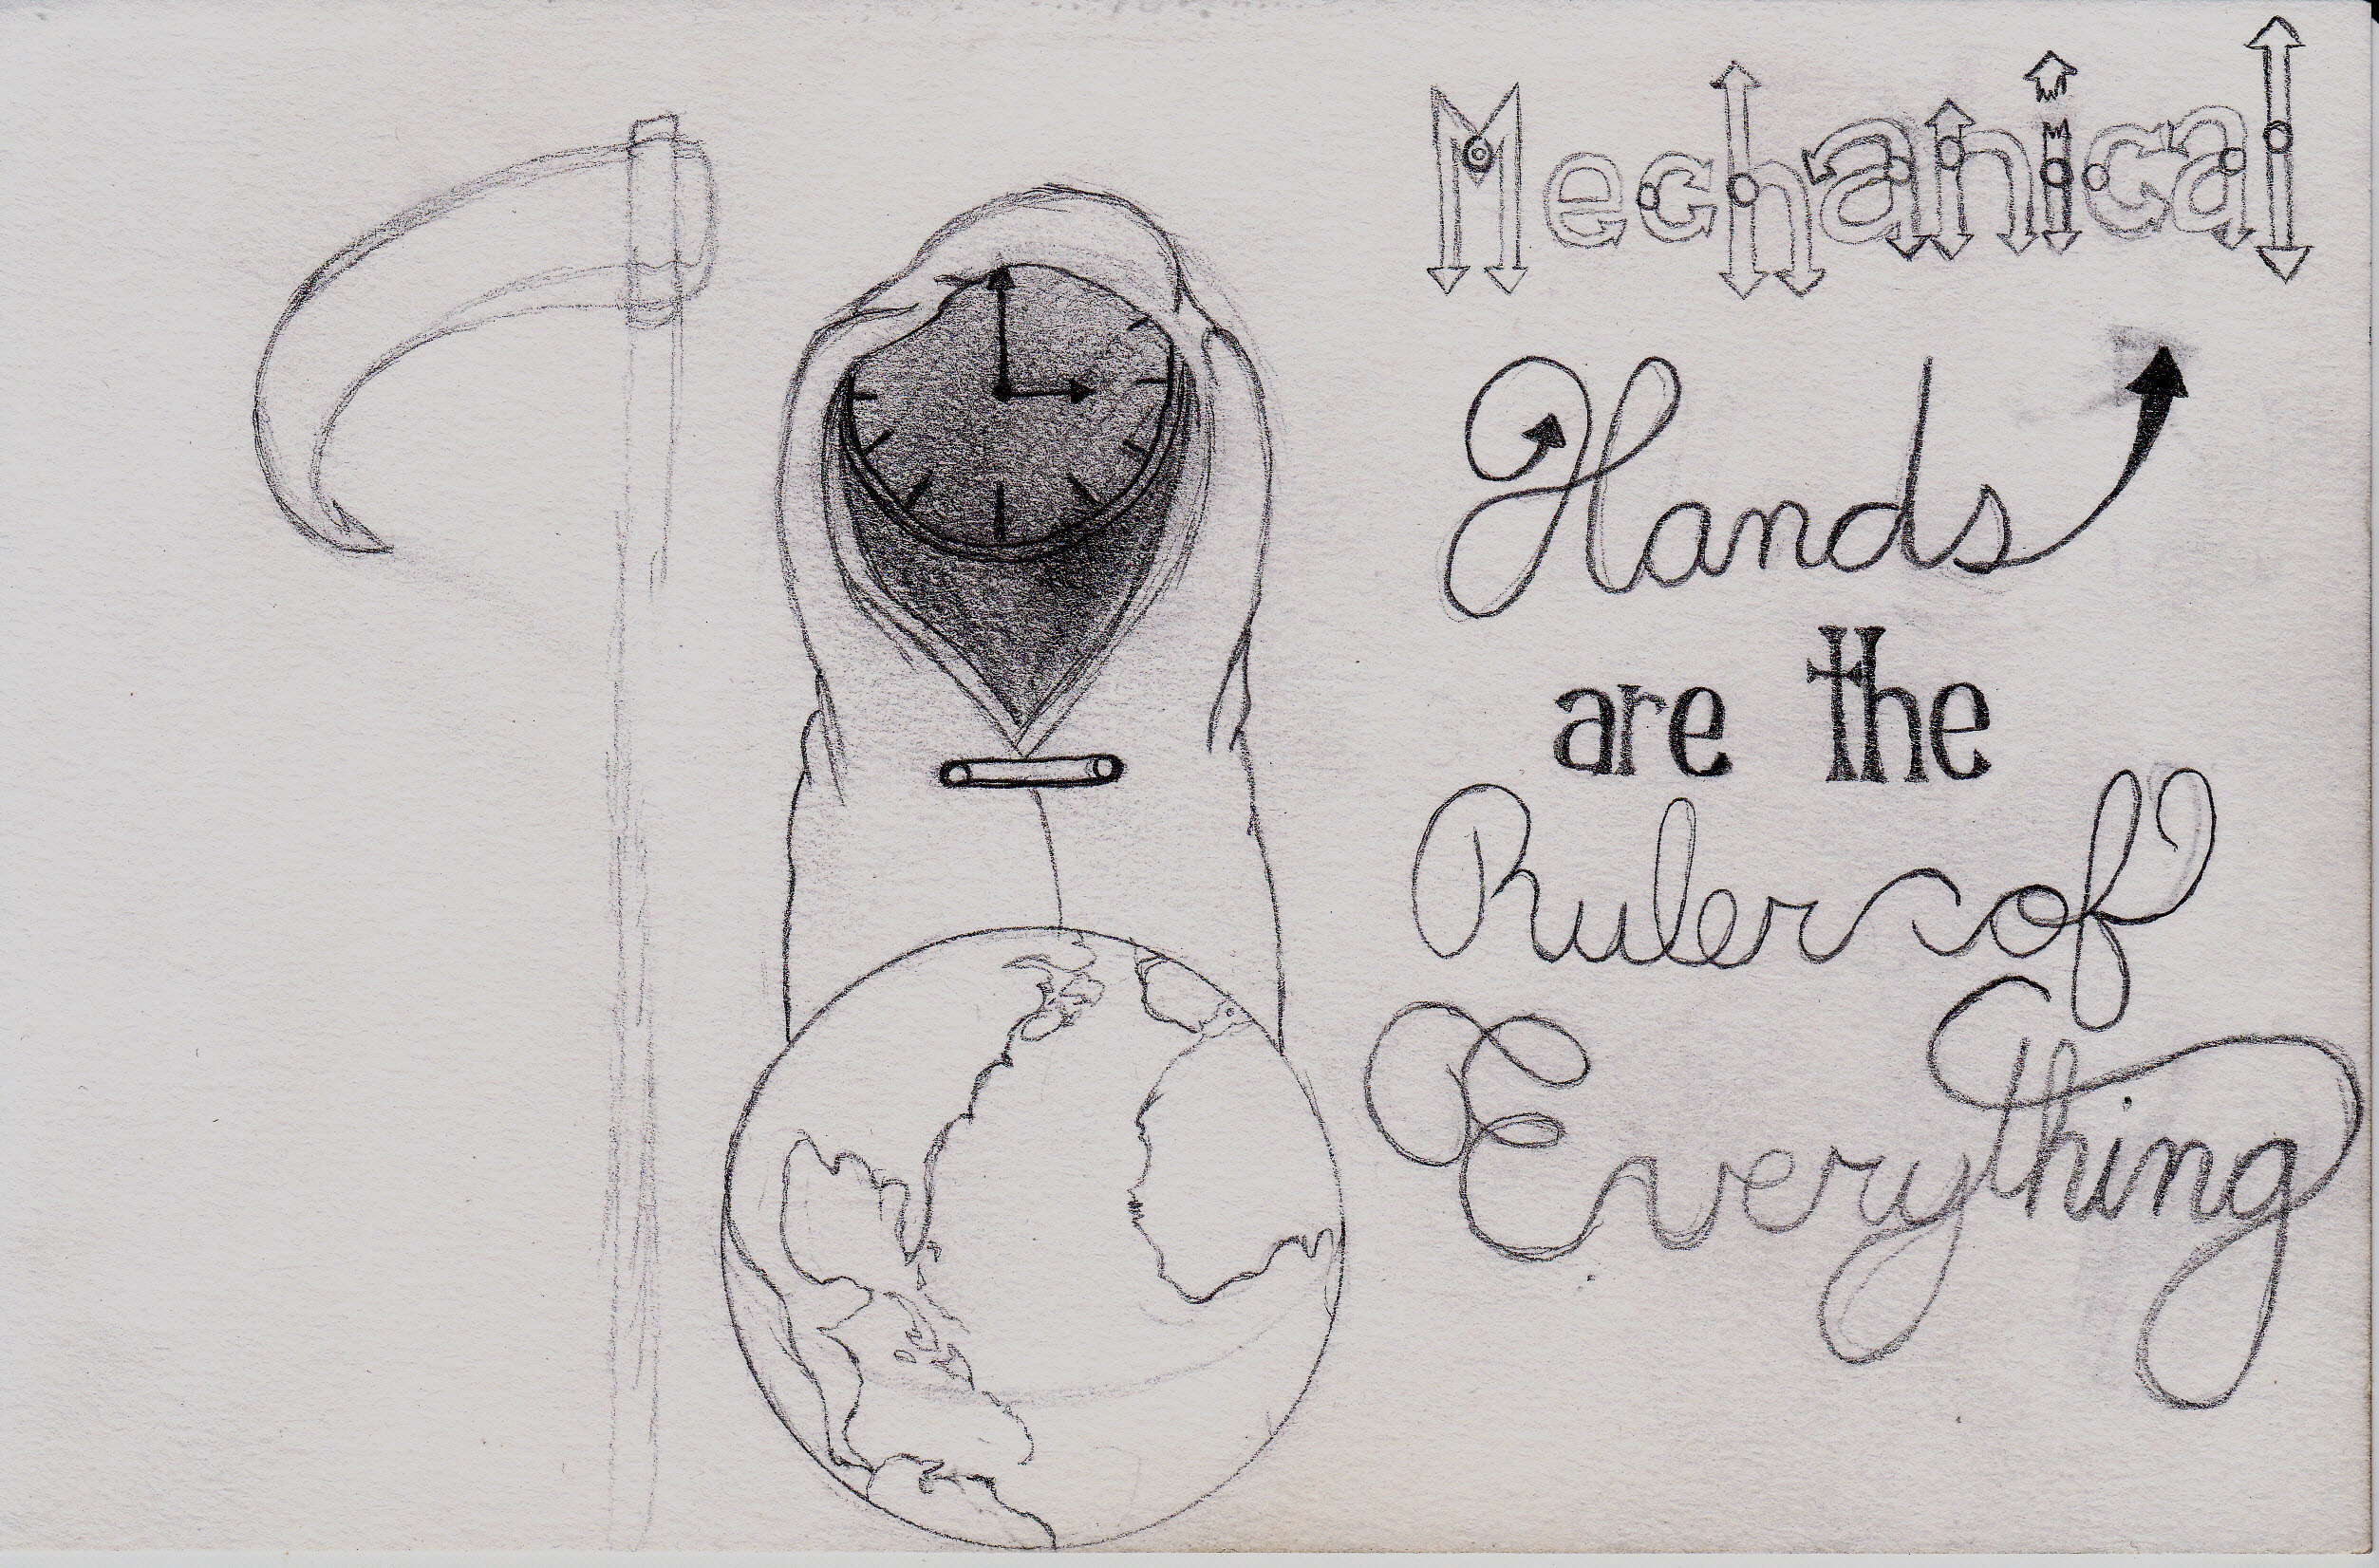 Mechanical
Hands
are the
Ruler of
Everything